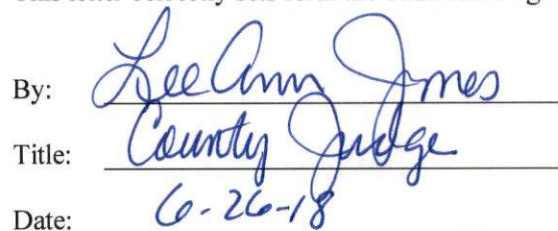 By: LeeAnn Jones
Title: County Judge
Date: 6-26-18